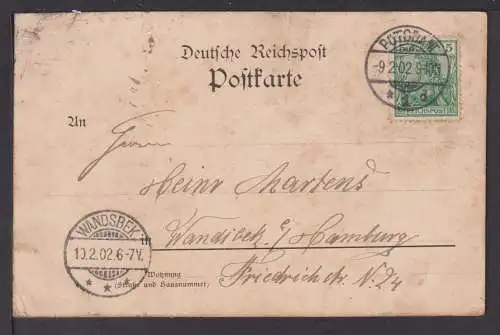 POTSDAM
-9.2.02.
5
REICHSPOST
Deutsche Reichspost
Postkarte
An
Herrn
Heinr Martens
in Wandsbek b/ Hamburg
Friedrichstr. N. 24
Wohnung
(Straße und Hausnummer)
WANDSBEK
10.2.02.6-7V.